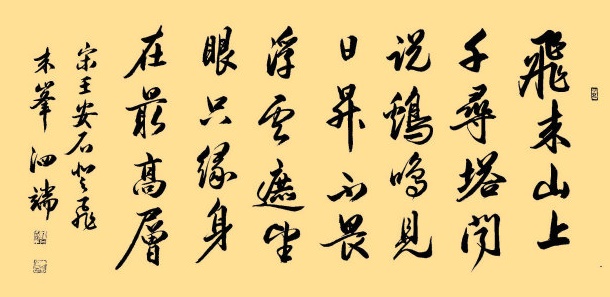 飛来山上
千尋塔聞
说鷄鳴見
日昇不畏
浮雲遮望
眼只緣身
在最高層
宋王安石登飛
来峯泗端